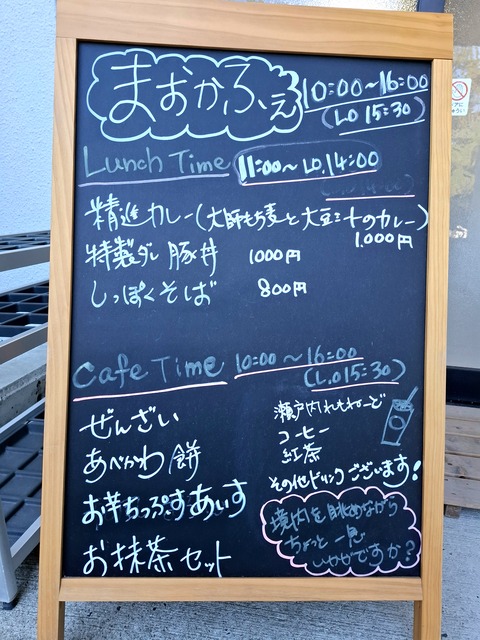 まおかふぇ
10:00~16:00
(L.O 15:30)
Lunch Time 11:00~LO.14:00
精進カレー(大師もち麦と大豆ミートのカレー)
1.000円
特製ダレ豚丼 1000円
しっぽくそば 800円
Cafe Time 10:00~16:00
(L.O15:30)
ぜんざい
あべかわ餅
お芋ちっぷすあいす
お抹茶セット
瀬戸内れもねーど
コーヒー
紅茶
その他ドリンクございます!
境内を眺めながら
ちょっと一息
いかがですか?